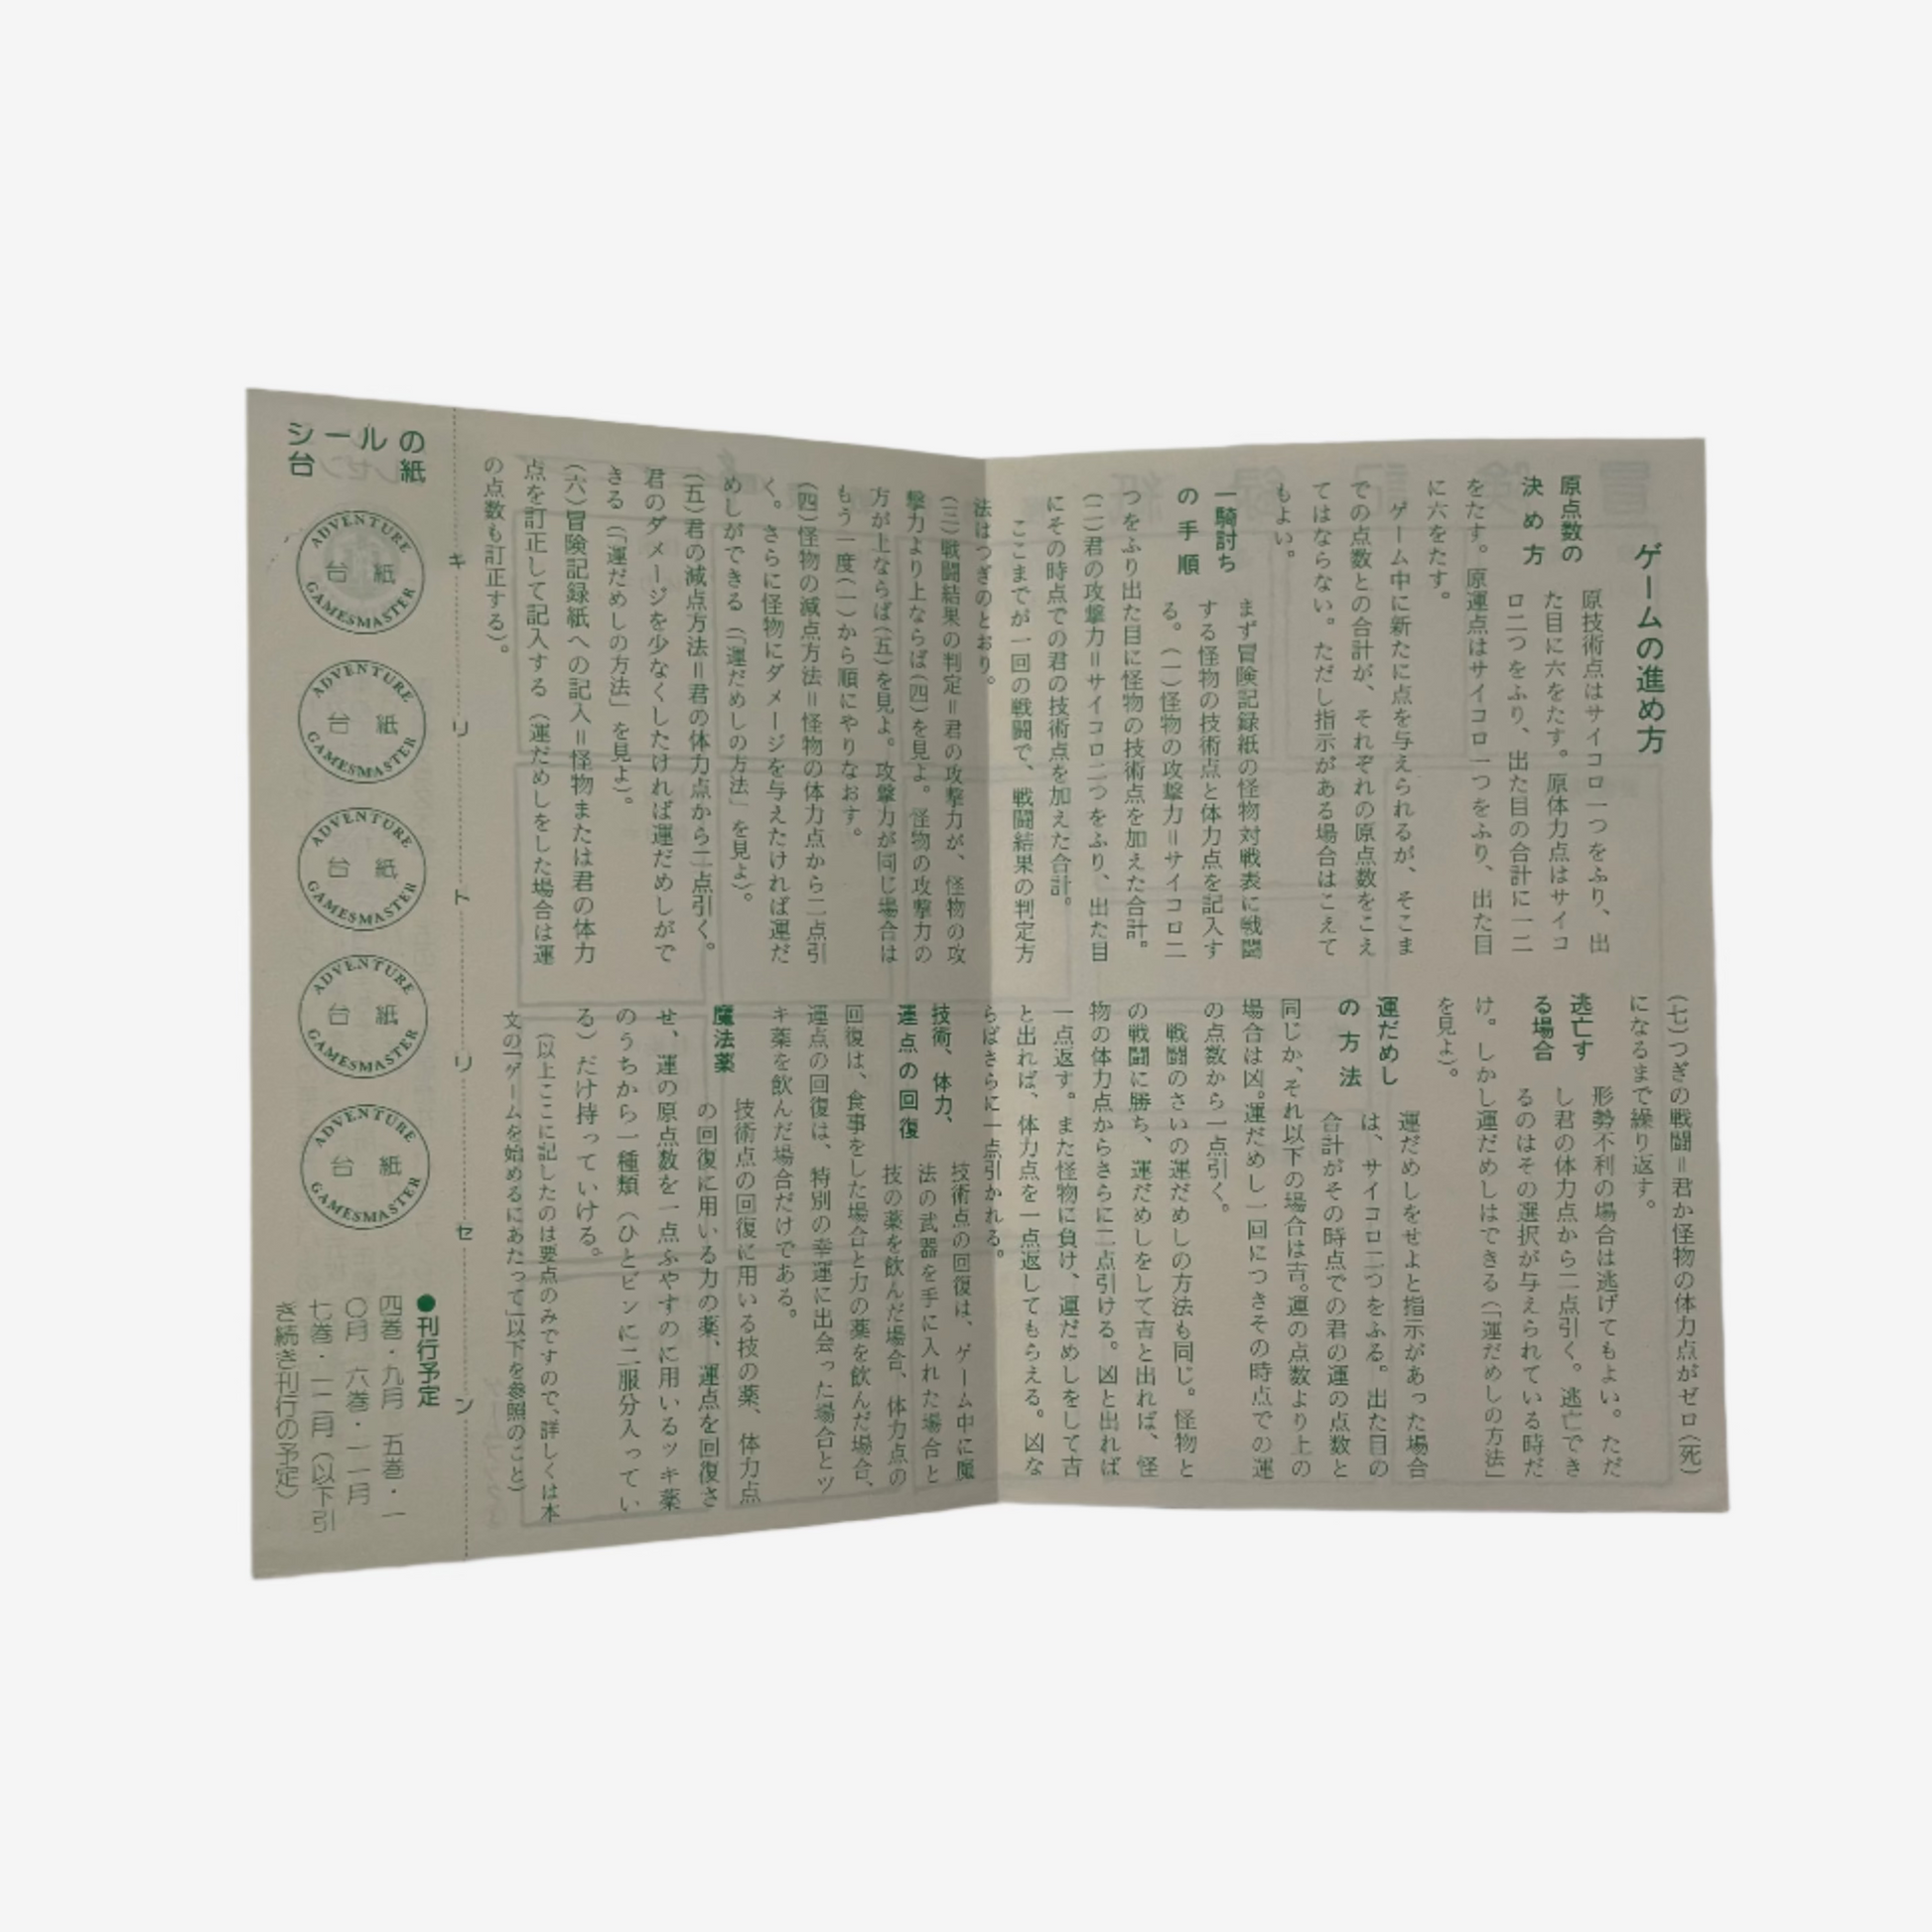 ゲームの進め方
原点数の
決め方
原技術点はサイコロ一つをふり、出
た目に六をたす。原体力点はサイコ
ロ二つをふり、出た目の合計に一二
をたす。原運点はサイコロ一つをふり、出た目
に六をたす。
ゲーム中に新たに点を与えられるが、そこま
での点数との合計が、それぞれの原点数をこえ
てはならない。ただし指示がある場合はこえて
もよい。
一騎討ち
の手順
まず冒険記録紙の怪物対戦表に戦闘
する怪物の技術点と体力点を記入す
る。(一)怪物の攻撃力=サイコロ二
つをふり出た目に怪物の技術点を加えた合計。
(二)君の攻撃力=サイコロ二つをふり、出た目
にその時点での君の技術点を加えた合計。
ここまでが一回の戦闘で、戦闘結果の判定方
法はつぎのとおり。
(三)戦闘結果の判定=君の攻撃力が、怪物の攻
撃力より上ならば(四)を見よ。怪物の攻撃力の
方が上ならば(五)を見よ。攻撃力が同じ場合は
もう一度(一)から順にやりなおす。
(四)怪物の減点方法=怪物の体力点から二点引
く。さらに怪物にダメージを与えたければ運だ
めしができる(「運だめしの方法」を見よ)。
(五)君の減点方法=君の体力点から二点引く。
君のダメージを少なくしたければ運だめしがで
きる(「運だめしの方法」を見よ)。
(六)冒険記録紙への記入=怪物または君の体力
点を訂正して記入する(運だめしをした場合は運
の点数も訂正する)。
(七)つぎの戦闘=君か怪物の体力点がゼロ(死)
になるまで繰り返す。
逃亡す
る場合
形勢不利の場合は逃げてもよい。ただ
し君の体力点から二点引く。逃亡でき
るのはその選択が与えられている時だ
け。しかし運だめしはできる(「運だめしの方法」
を見よ)。
運だめし
の方法
運だめしをせよと指示があった場合
は、サイコロ二つをふる。出た目の
合計がその時点での君の運の点数と
同じか、それ以下の場合は吉。運の点数より上の
場合は凶。運だめし一回につきその時点での運
の点数から一点引く。
戦闘のさいの運だめしの方法も同じ。怪物と
の戦闘に勝ち、運だめしをして吉と出れば、怪
物の体力点からさらに二点引ける。凶と出れば
一点返す。また怪物に負け、運だめしをして吉
と出れば、体力点を一点返してもらえる。凶な
らばさらに一点引かれる。
技術、体力、
運点の回復
技術点の回復は、ゲーム中に魔
法の武器を手に入れた場合と
技の薬を飲んだ場合、体力点の
回復は、食事をした場合と力の薬を飲んだ場合、
運点の回復は、特別の幸運に出会った場合とツ
キ薬を飲んだ場合だけである。
魔法薬
技術点の回復に用いる技の薬、体力点
の回復に用いる力の薬、運点を回復さ
せ、運の原点数を一点ふやすのに用いるツキ薬
のうちから一種類(ひとビンに二服分入ってい
る)だけ持っていける。
(以上ここに記したのは要点のみですので、詳しくは本
文の「ゲームを始めるにあたって」以下を参照のこと)
キリトリセン
シールの
台紙
ADVENTURE
台紙
GAMESMASTER
ADVENTURE
台紙
GAMESMASTER
ADVENTURE
台紙
GAMESMASTER
ADVENTURE
台紙
GAMESMASTER
ADVENTURE
台紙
GAMESMASTER
●刊行予定
四巻・九月 五巻・一
〇月 六巻・一一月
七巻・一二月(以下引
き続き刊行の予定)